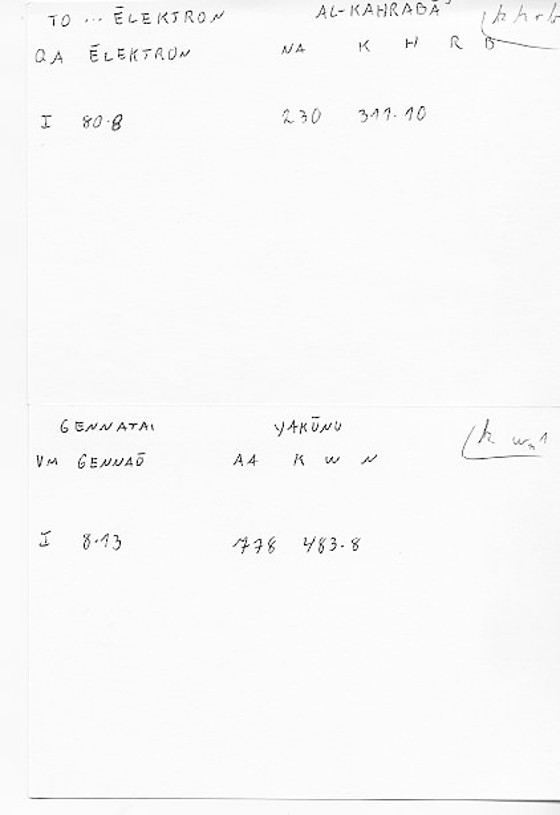 TO ... ĒLEKTRON AL-KAHRABĀʾ khrb
QA ĒLEKTRON NA K H R B
I 80.8 230 311.10
GENNATAI YAKŪNU k wn 1
VM GENNAŌ AA K W N
I 8.13 778 483.8